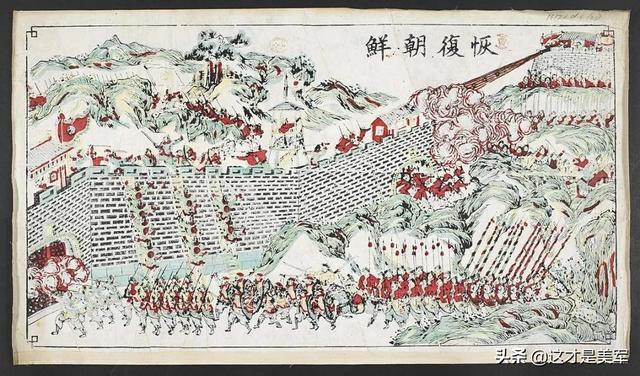 恢復朝鮮
头条 @这才是美军